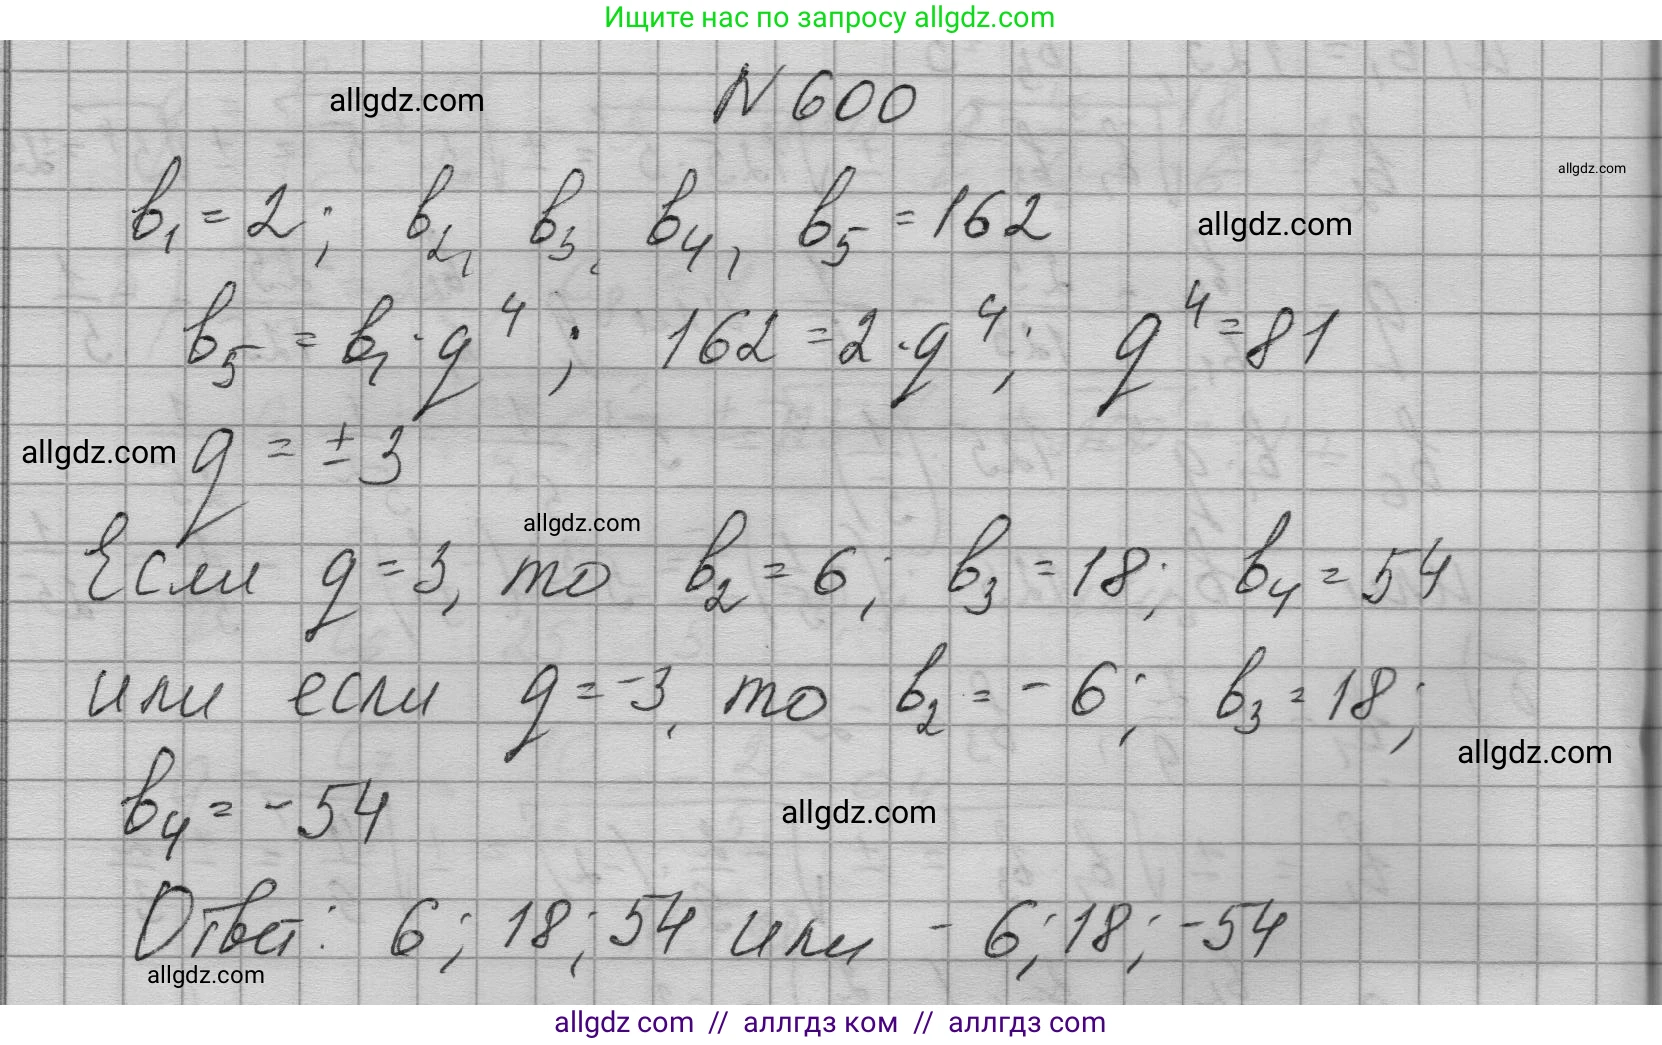 Ищите нас по запросу allgdz.com
allgdz.com
N 600
allgdz.com
b₁ = 2; b₂, b₃, b₄, b₅ = 162
allgdz.com
b₅ = b₁ · q⁴; 162 = 2 · q⁴; q⁴ = 81
allgdz.com
q = ± 3
allgdz.com
Если q = 3, то b₂ = 6; b₃ = 18; b₄ = 54
или если q = -3, то b₂ = - 6; b₃ = 18;
allgdz.com
b₄ = - 54
allgdz.com
Ответ: 6; 18; 54 или - 6; 18; -54
allgdz.com
allgdz com // аллгдз ком // аллгдз com